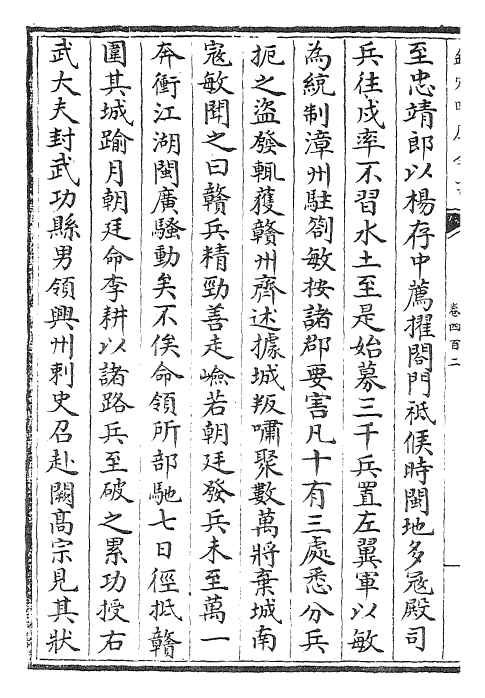 至忠靖郎以楊存中薦擢閤門祗候時閩地多寇殿司
兵往戍率不習水土至是始募三千兵置左翼軍以敏
為統制漳州駐劄敏按諸郡要害凡十有三處悉分兵
扼之盜發輒獲贛州齊述據城叛嘯聚數萬將棄城南
寇敏聞之曰贛兵精勁善走嶮若朝廷發兵未至萬一
奔衝江湖閩廣騷動矣不俟命領所部馳七日徑抵贛
圍其城踰月朝廷命李耕以諸路兵至破之累功授右
武大夫封武功縣男領興州刺史召赴闕高宗見其狀
卷四百二